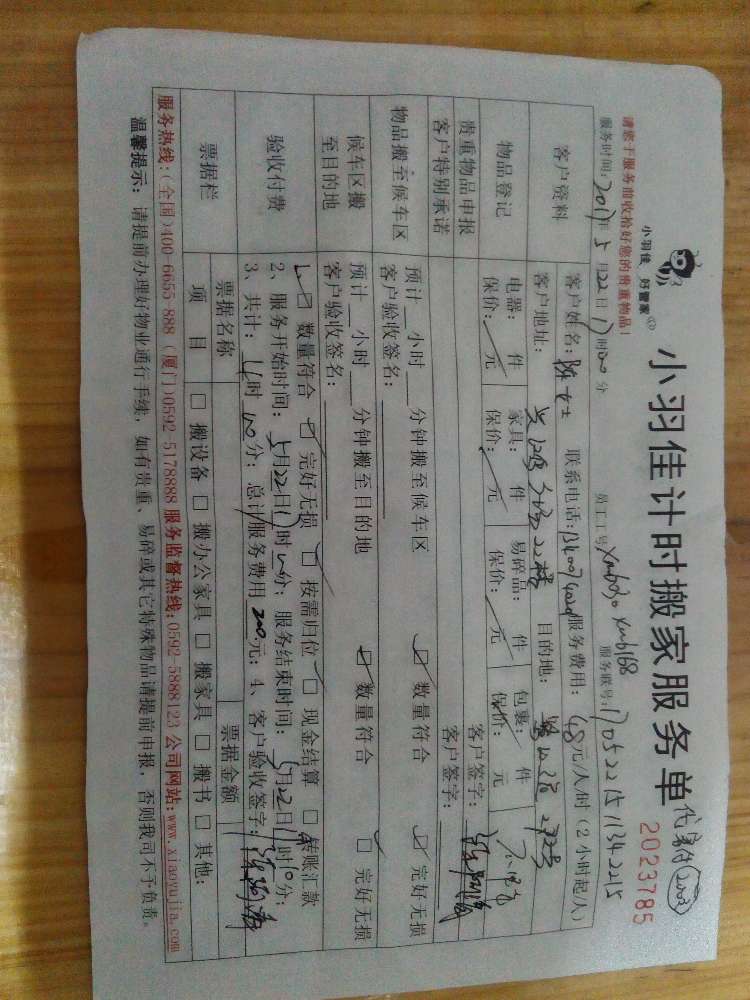 小羽佳 好管家
小羽佳计时搬家服务单
2023785
请您于服务前收拾好您的贵重物品！
服务时间：2017年5月22日17时00分 员工工号 服务账号：
客户资料
客户姓名：陈女士 联系电话： 服务费用：48元/人/时（2小时起/人）
客户地址： 目的地：
物品登记
电器： 件 家具： 件 易碎品： 件 包裹： 件
保价： 元 保价： 元 保价： 元 保价： 元
贵重物品申报 客户签字：
客户特别承诺 客户签字：
物品搬至候车区
预计 小时 分钟搬至候车区 数量符合 完好无损
客户验收签名：
候车区搬至目的地
预计 小时 分钟搬至目的地 数量符合 完好无损
客户验收签名：
验收付费
1、 数量符合 完好无损 按需归位 现金结算 转账汇款
2、服务开始时间：5月22日 时 分；服务结束时间：5月22日 时 分；
3、共计： 时 分；总计服务费用200元；4、客户验收签字：
票据栏
票据名称 票据金额
项目 搬设备 搬办公家具 搬家具 搬书 其他：
服务热线：（全国）400-6655-888（厦门）0592-5178888 服务监督热线：0592-5888123 公司网站：www.xiaoyujia.com
温馨提示：请提前办理好物业通行手续，如有贵重、易碎或其它特殊物品请提前申报，否则我司不予负责。